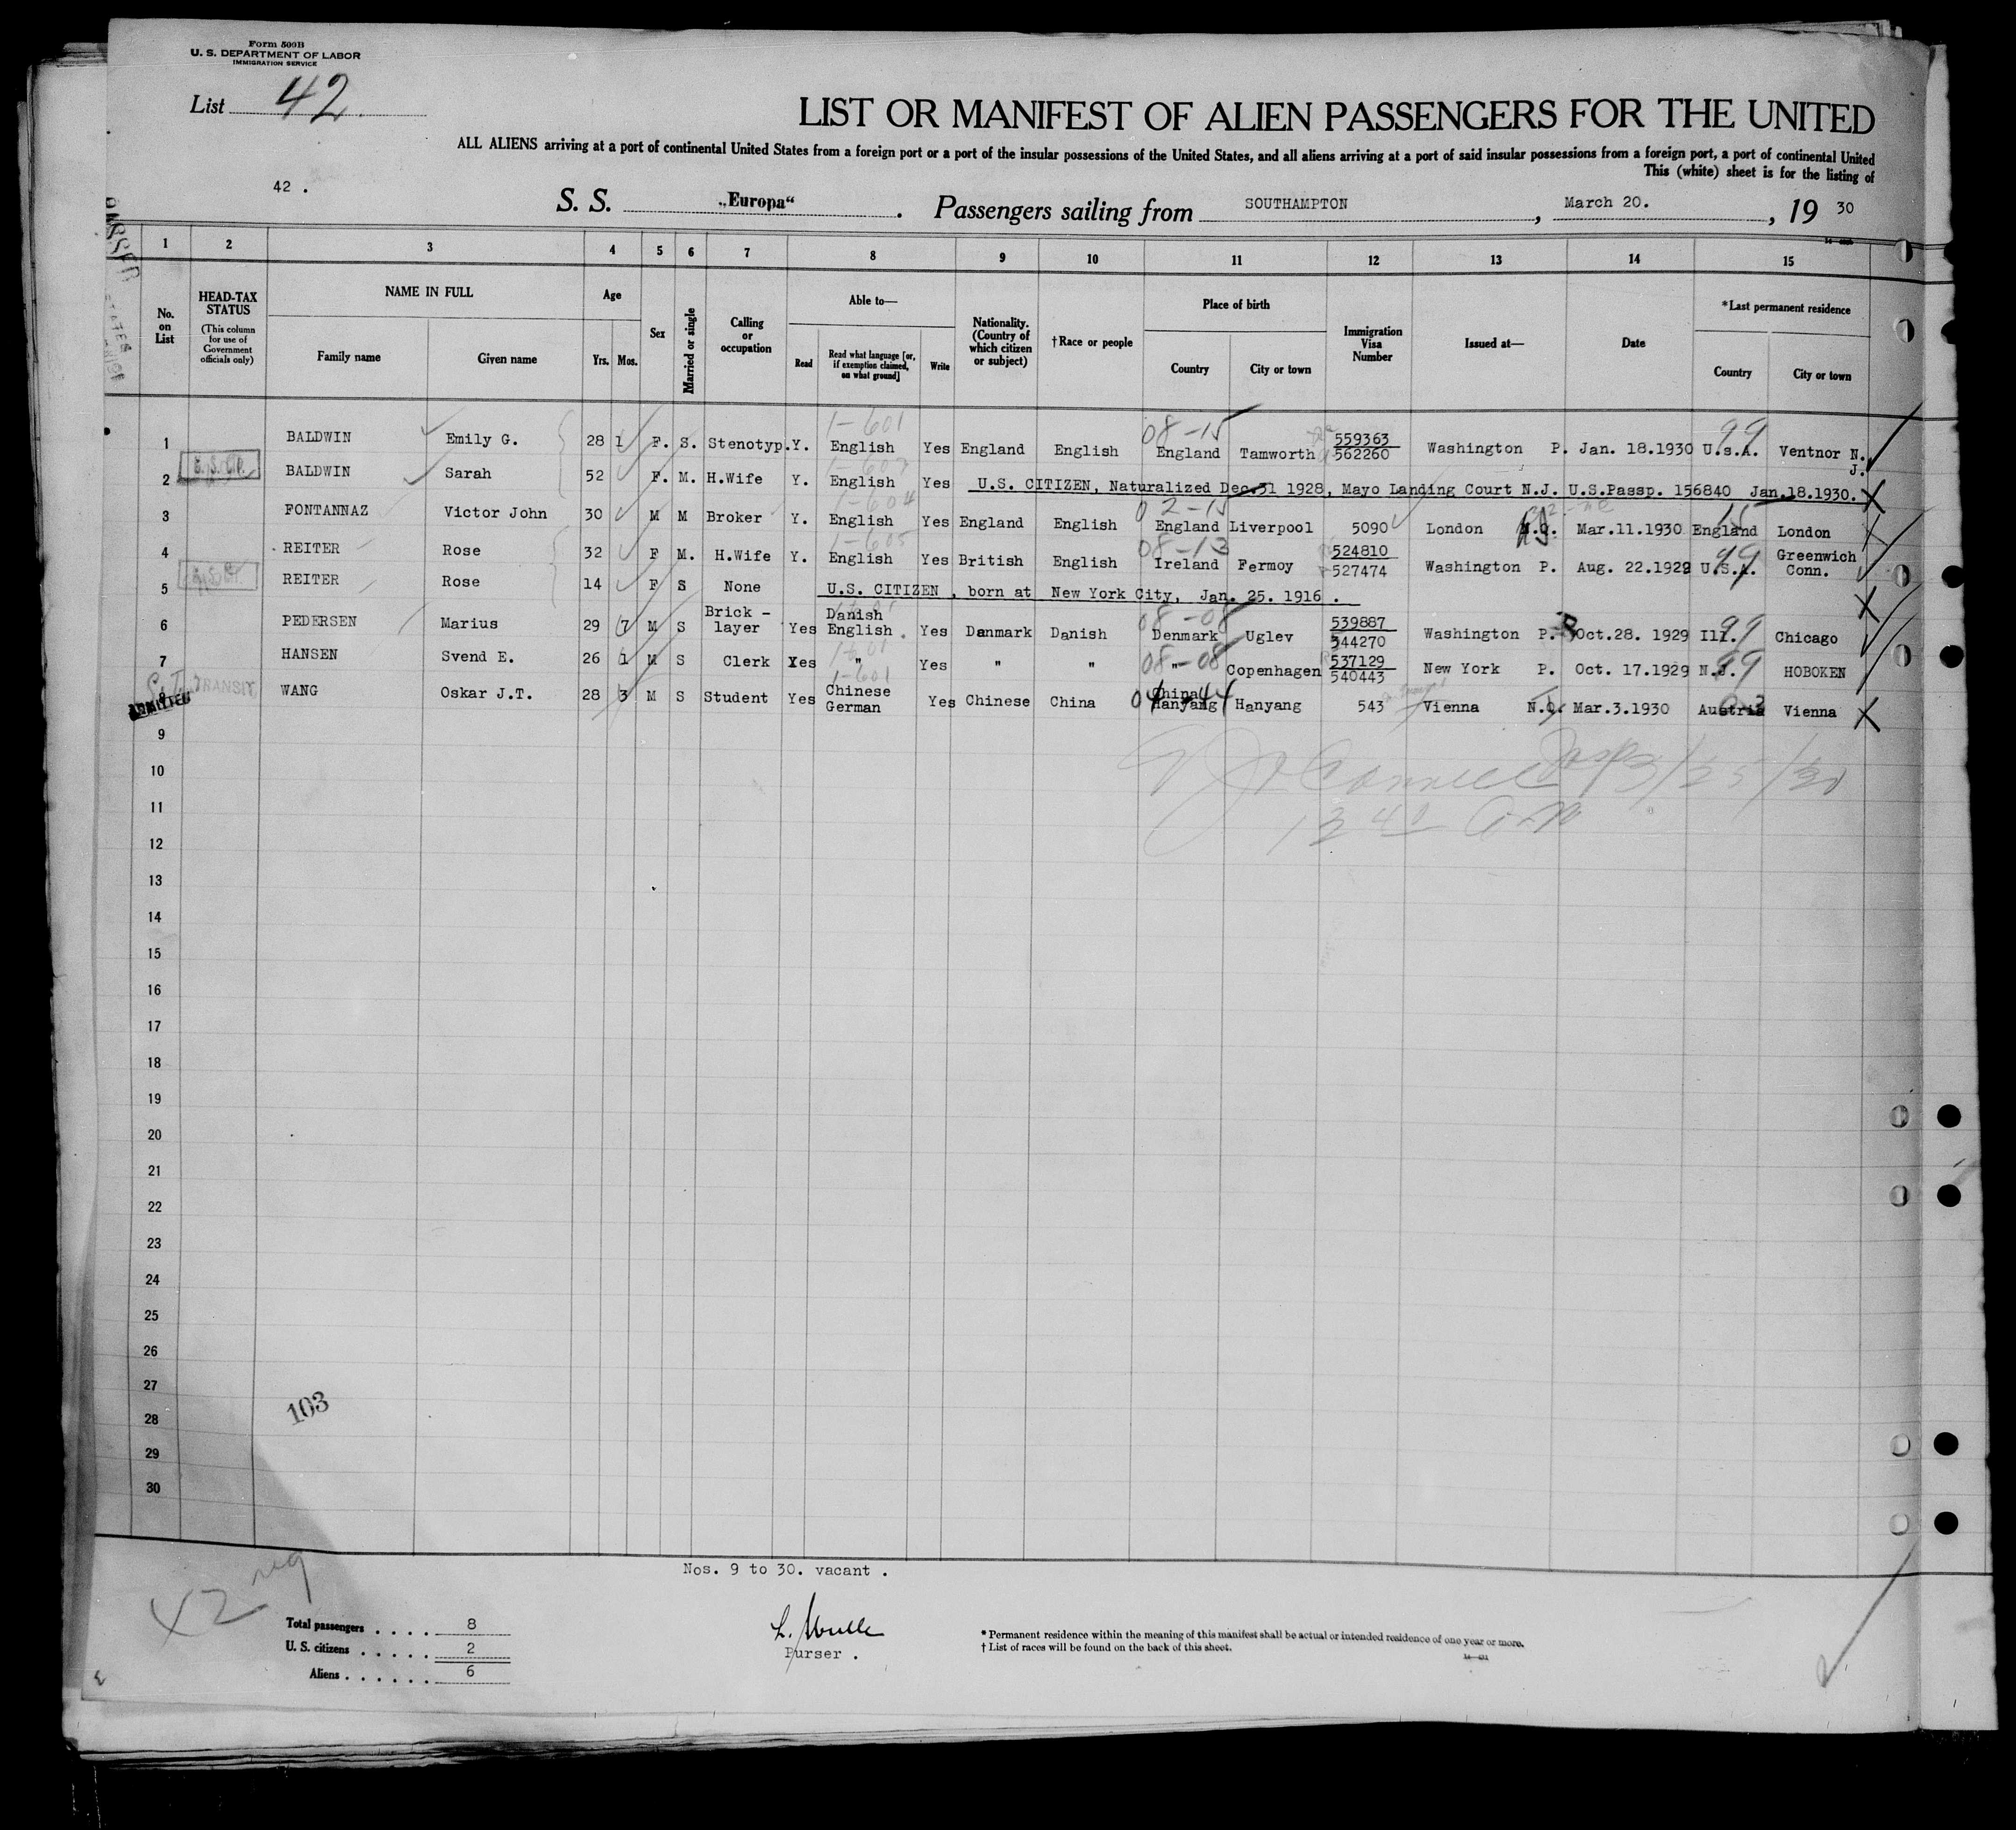 Form 500B
U. S. DEPARTMENT OF LABOR
IMMIGRATION SERVICE
List 42.
LIST OR MANIFEST OF ALIEN PASSENGERS FOR THE UNITED
ALL ALIENS arriving at a port of continental United States from a foreign port or a port of the insular possessions of the United States, and all aliens arriving at a port of said insular possessions from a foreign port, a port of continental United
This (white) sheet is for the listing of
42 .
S. S. „Europa“ . Passengers sailing from SOUTHAMPTON , March 20. , 19 30
1 2 3 4 5 6 7 8 9 10 11 12 13 14 15
No. on List
HEAD-TAX STATUS (This column for use of Government officials only)
NAME IN FULL
Family name
Given name
Age
Yrs. Mos.
Sex
Married or single
Calling or occupation
Able to—
Read
Read what language [or, if exemption claimed, on what ground]
Write
Nationality. (Country of which citizen or subject)
†Race or people
Place of birth
Country
City or town
Immigration Visa Number
Issued at—
Date
*Last permanent residence
Country
City or town
1 BALDWIN Emily G. 28 1 F. S. Stenotyp. Y. 1-601 English Yes England English 08-15 England Tamworth 559363 562260 Washington P. Jan. 18.1930 U.s.A. 99 Ventnor N. J.
2 BALDWIN Sarah 52 F. M. H.Wife Y. English Yes U.S. CITIZEN, Naturalized Dec.31 1928, Mayo Landing Court N.J. U.S.Passp. 156840 Jan.18.1930.
3 FONTANNAZ Victor John 30 M M Broker Y. 1-604 English Yes England English 02-15 England Liverpool 5090 London Mar.11.1930 England 15 London
4 REITER Rose 32 F M. H.Wife Y. 1-605 English Yes British English 08-13 Ireland Fermoy 524810 527474 Washington P. Aug. 22.1929 U.S.A. 99 Greenwich Conn.
5 REITER Rose 14 F S None U.S. CITIZEN , born at New York City, Jan. 25. 1916 .
6 PEDERSEN Marius 29 7 M S Brick - layer Yes Danish English . Yes Danmark Danish 08-08 Denmark Uglev 539887 544270 Washington P. Oct.28. 1929 Ill. 99 Chicago
7 HANSEN Svend E. 26 1 M S Clerk Yes 1-601 " Yes " " 08-08 " Copenhagen 537129 540443 New York P. Oct. 17.1929 N.J. 99 HOBOKEN
TRANSIT
ADMITTED
8 WANG Oskar J.T. 28 3 M S Student Yes 1-601 Chinese German Yes Chinese China 04-44 China Hanyang Hanyang 543 Vienna N.Q. Mar.3.1930 Austria 03 Vienna
9
3/25/30
10
11
12
13
14
15
16
17
18
19
20
21
22
23
24
25
26
27
28 103
29
30
Nos. 9 to 30. vacant .
42
Total passengers . . . . 8
U. S. citizens . . . . . 2
Aliens . . . . . . 6
Purser .
* Permanent residence within the meaning of this manifest shall be actual or intended residence of one year or more.
† List of races will be found on the back of this sheet.